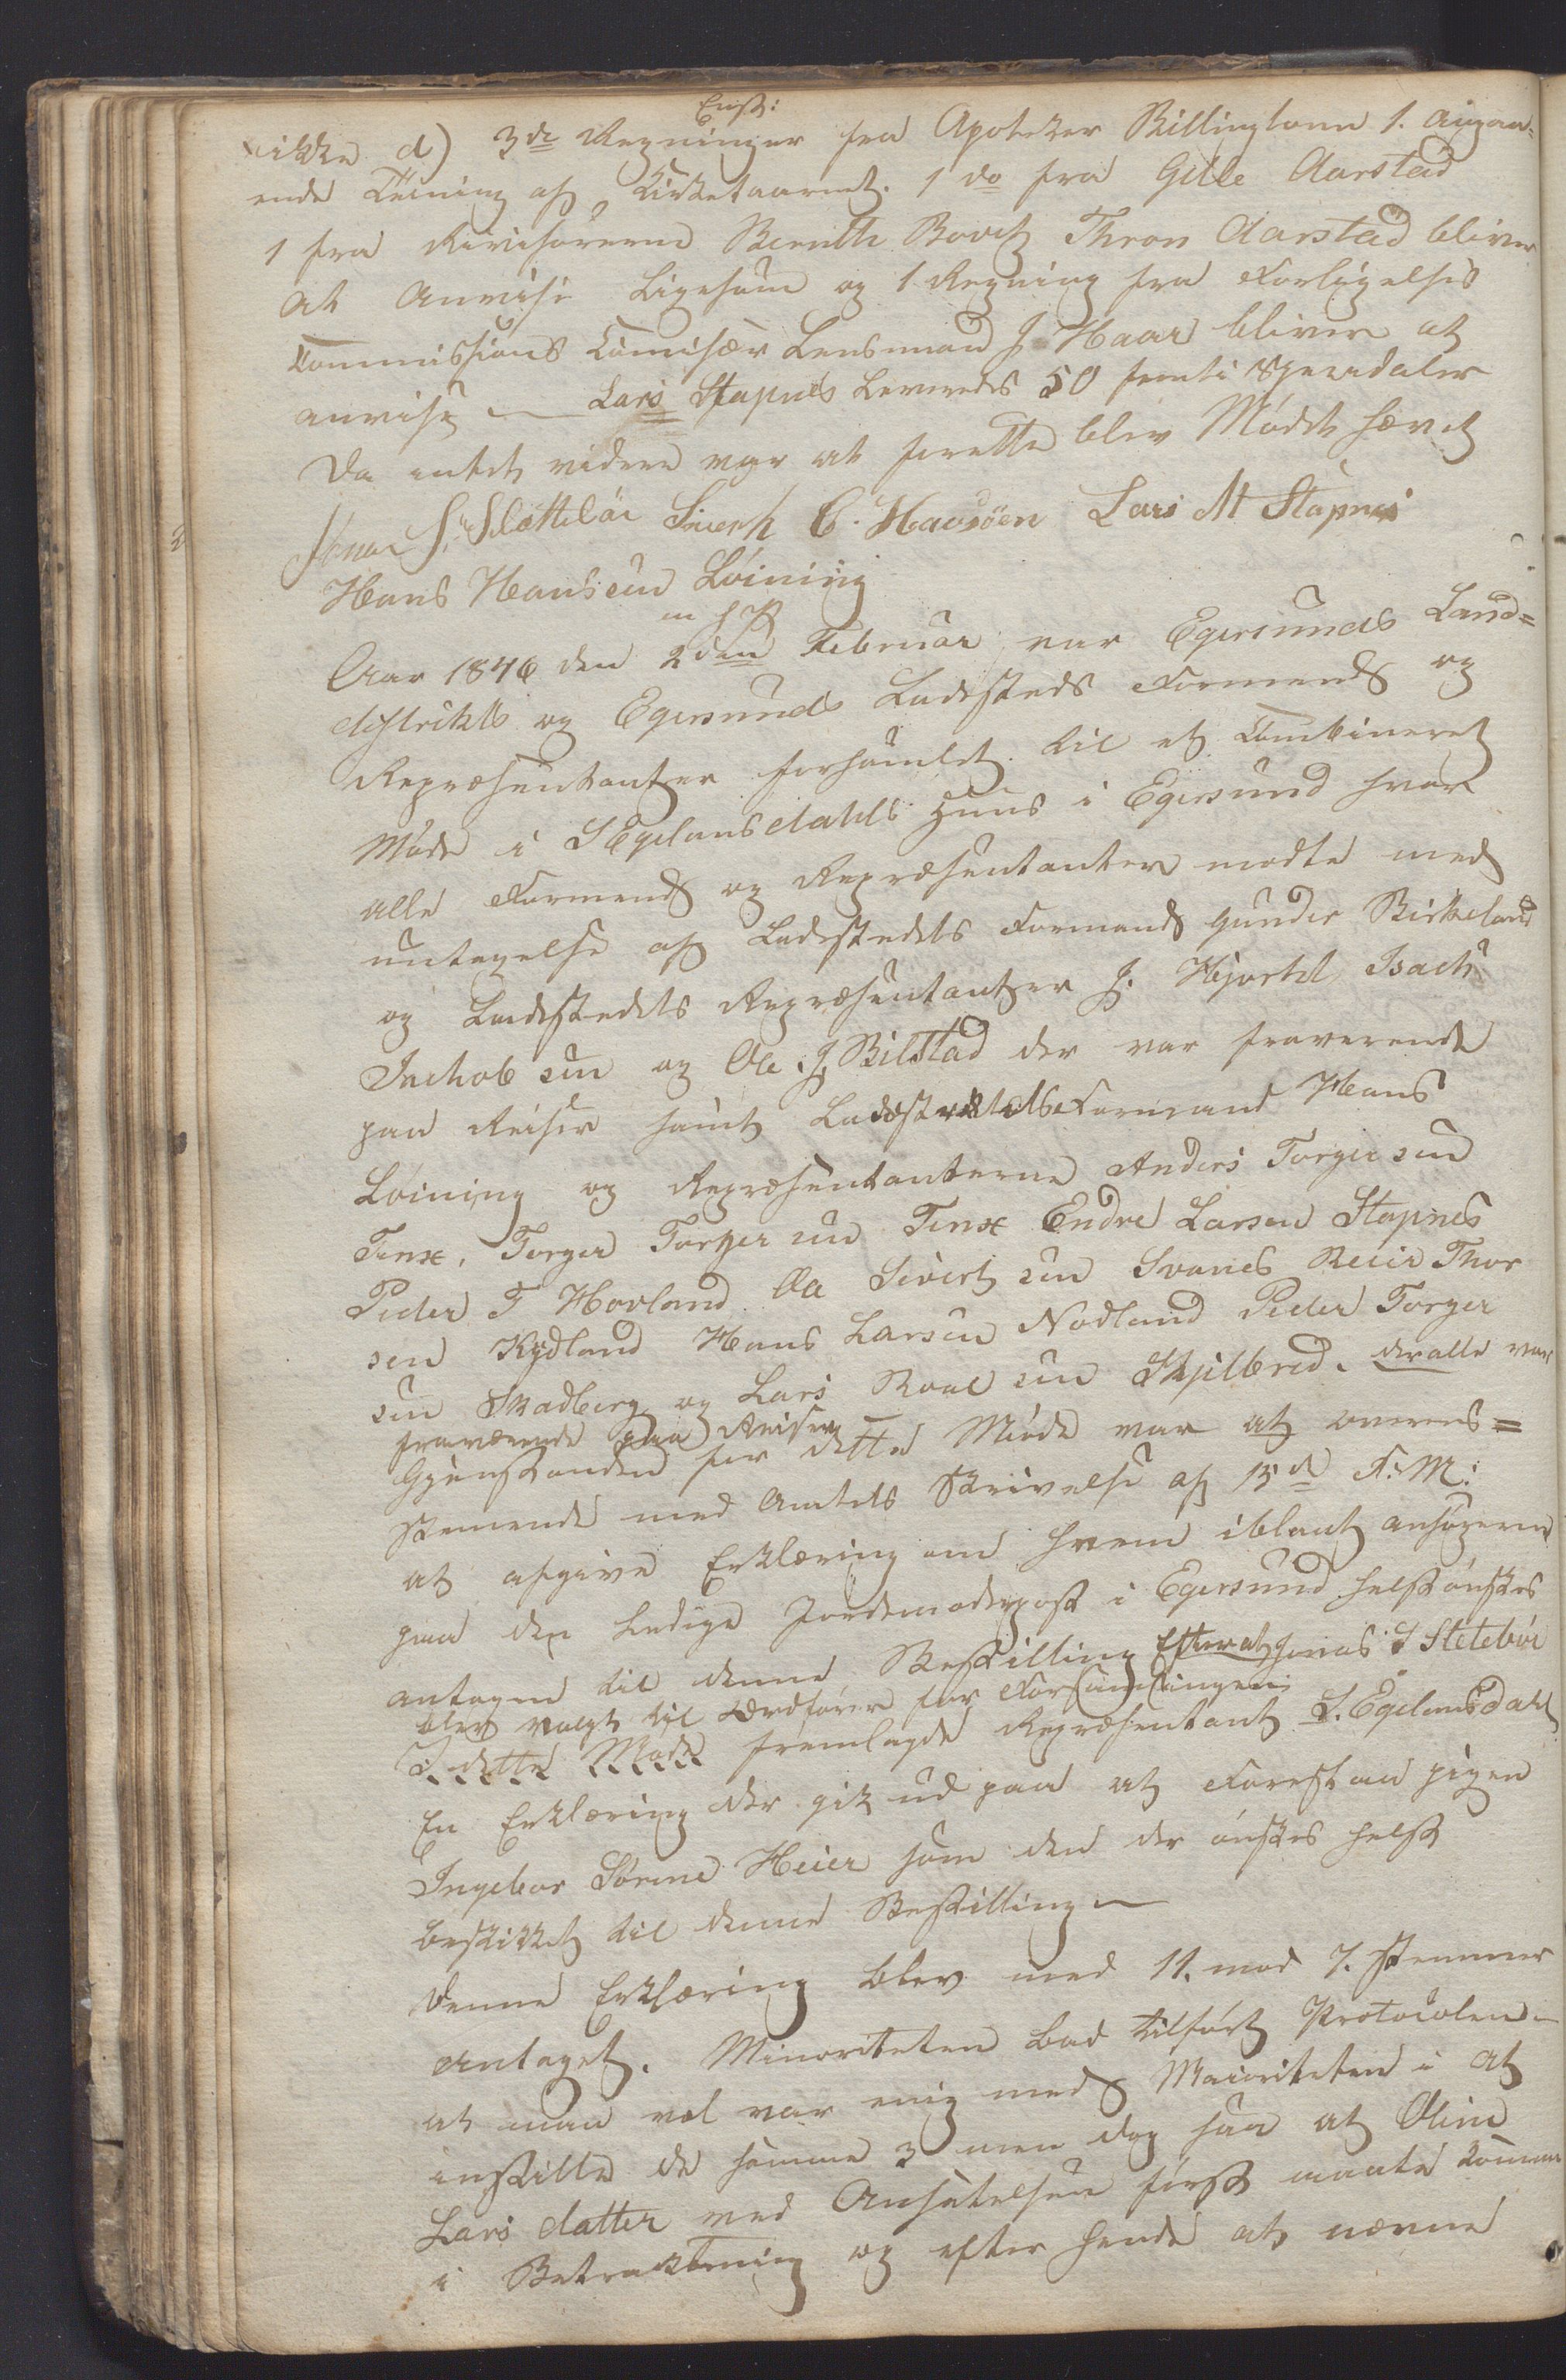 ikke d) 3de Regninger fra Apoteker Billington 1. angaa-
ende Tækning af Kirketaarnet. 1 do fra Gitle Aarstad
1 fra Revisorerne Bernth Bovitz Thron Aarstad bliver
at Anvise Ligesom og 1 Regning fra Forligelses
Commissions Comisær Lensmand J Haar bliver at
anvise — Lars Stapnes Leveredes 50 femti Speciedaler
Da intet videre var at forette blev Mødet hævet
Jonas S. Slættebøe Sivert C. Havsøen Lars M Stapnes
Hans Hansen Løining
m f P
Aar 1846 den 2den Februar var Egersunds Land=
distrikts og Egersunds Ladesteds Formænd og
Repræsentanter forsamlet til et Combineret
Møde i S Egelandsdahls Huus i Egersund hvor
alle Formænd og Repræsentanter mødte med
untagelse af Ladestedets Formand Gunder Birkeland
og Ladestedets Repræsentanter J. Hjortel, Isach
Jachob sen og Ole J. Bilstad der var fraværende
paa Reiser samt Landdistriktets Formand Hans
Løining og Repræsentanterne Anders Torger sen
Tenx, Torger Torger sen Tenx Endre Larsen Stapnes
Peder T Hovland Ole Sivert sen Svanes Reier Thor
sen Kydland Hans Larsen Nodland Peder Torger
sen Skadberg og Lars Roal sen Skjilbred. der alle var
fraværende paa Reiser
Gjenstanden for dette Møde var at overens=
stemende med Amtets Skrivelse af 15de F. M:
at afgive Erklæring om hvem iblant ansøgerne
paa den Ledige Jordemoderpost i Egersund helst ønskes
antagen til denne Bestilling Efterat Jonas S Sletebøe
blev valgt til Ordfører for Forsamlingen
I dette Møde fremlagde Repræsentant S. Egelandsdahl
En Erklæring der gik ud paa at Foreslaa pigen
Ingebor Sørine Heier som den der ønskes helst
beskikket til denne Bestilling —
Denne Erklæring blev med 11. mod 7. Stemmer
Antaget. Minoriteten bad tilført Protocolen —
at man vel var enig med Maioriteten i at
instille de samme 3 men dog saa at Oline
Lars datter ved Ansættelsen først maate komme
i Betraktning og efter hende at nævne